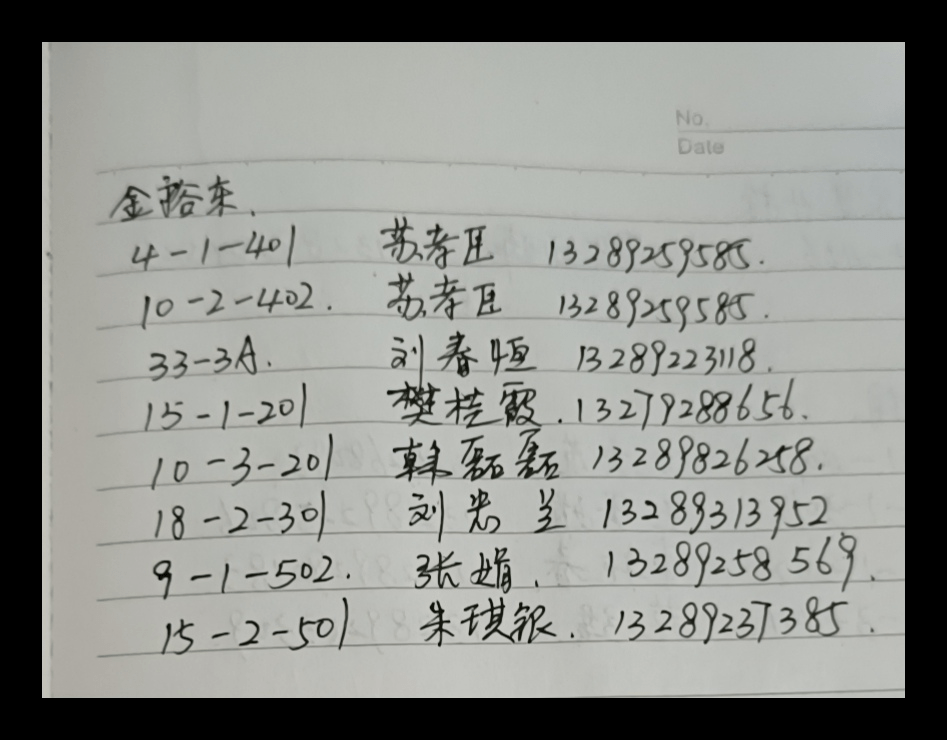 No.
Date
金裕东.
4-1-401 苏孝臣 13289259585.
10-2-402. 苏孝臣 13289259585.
33-3A. 刘春恒 13289223118.
15-1-201 樊桂霞.13279288656.
10-3-201 韩磊磊 13289826258.
18-2-301 刘忠兰 13289313952
9-1-502. 张娟. 13289258569.
15-2-501 朱琪银. 13289237385.